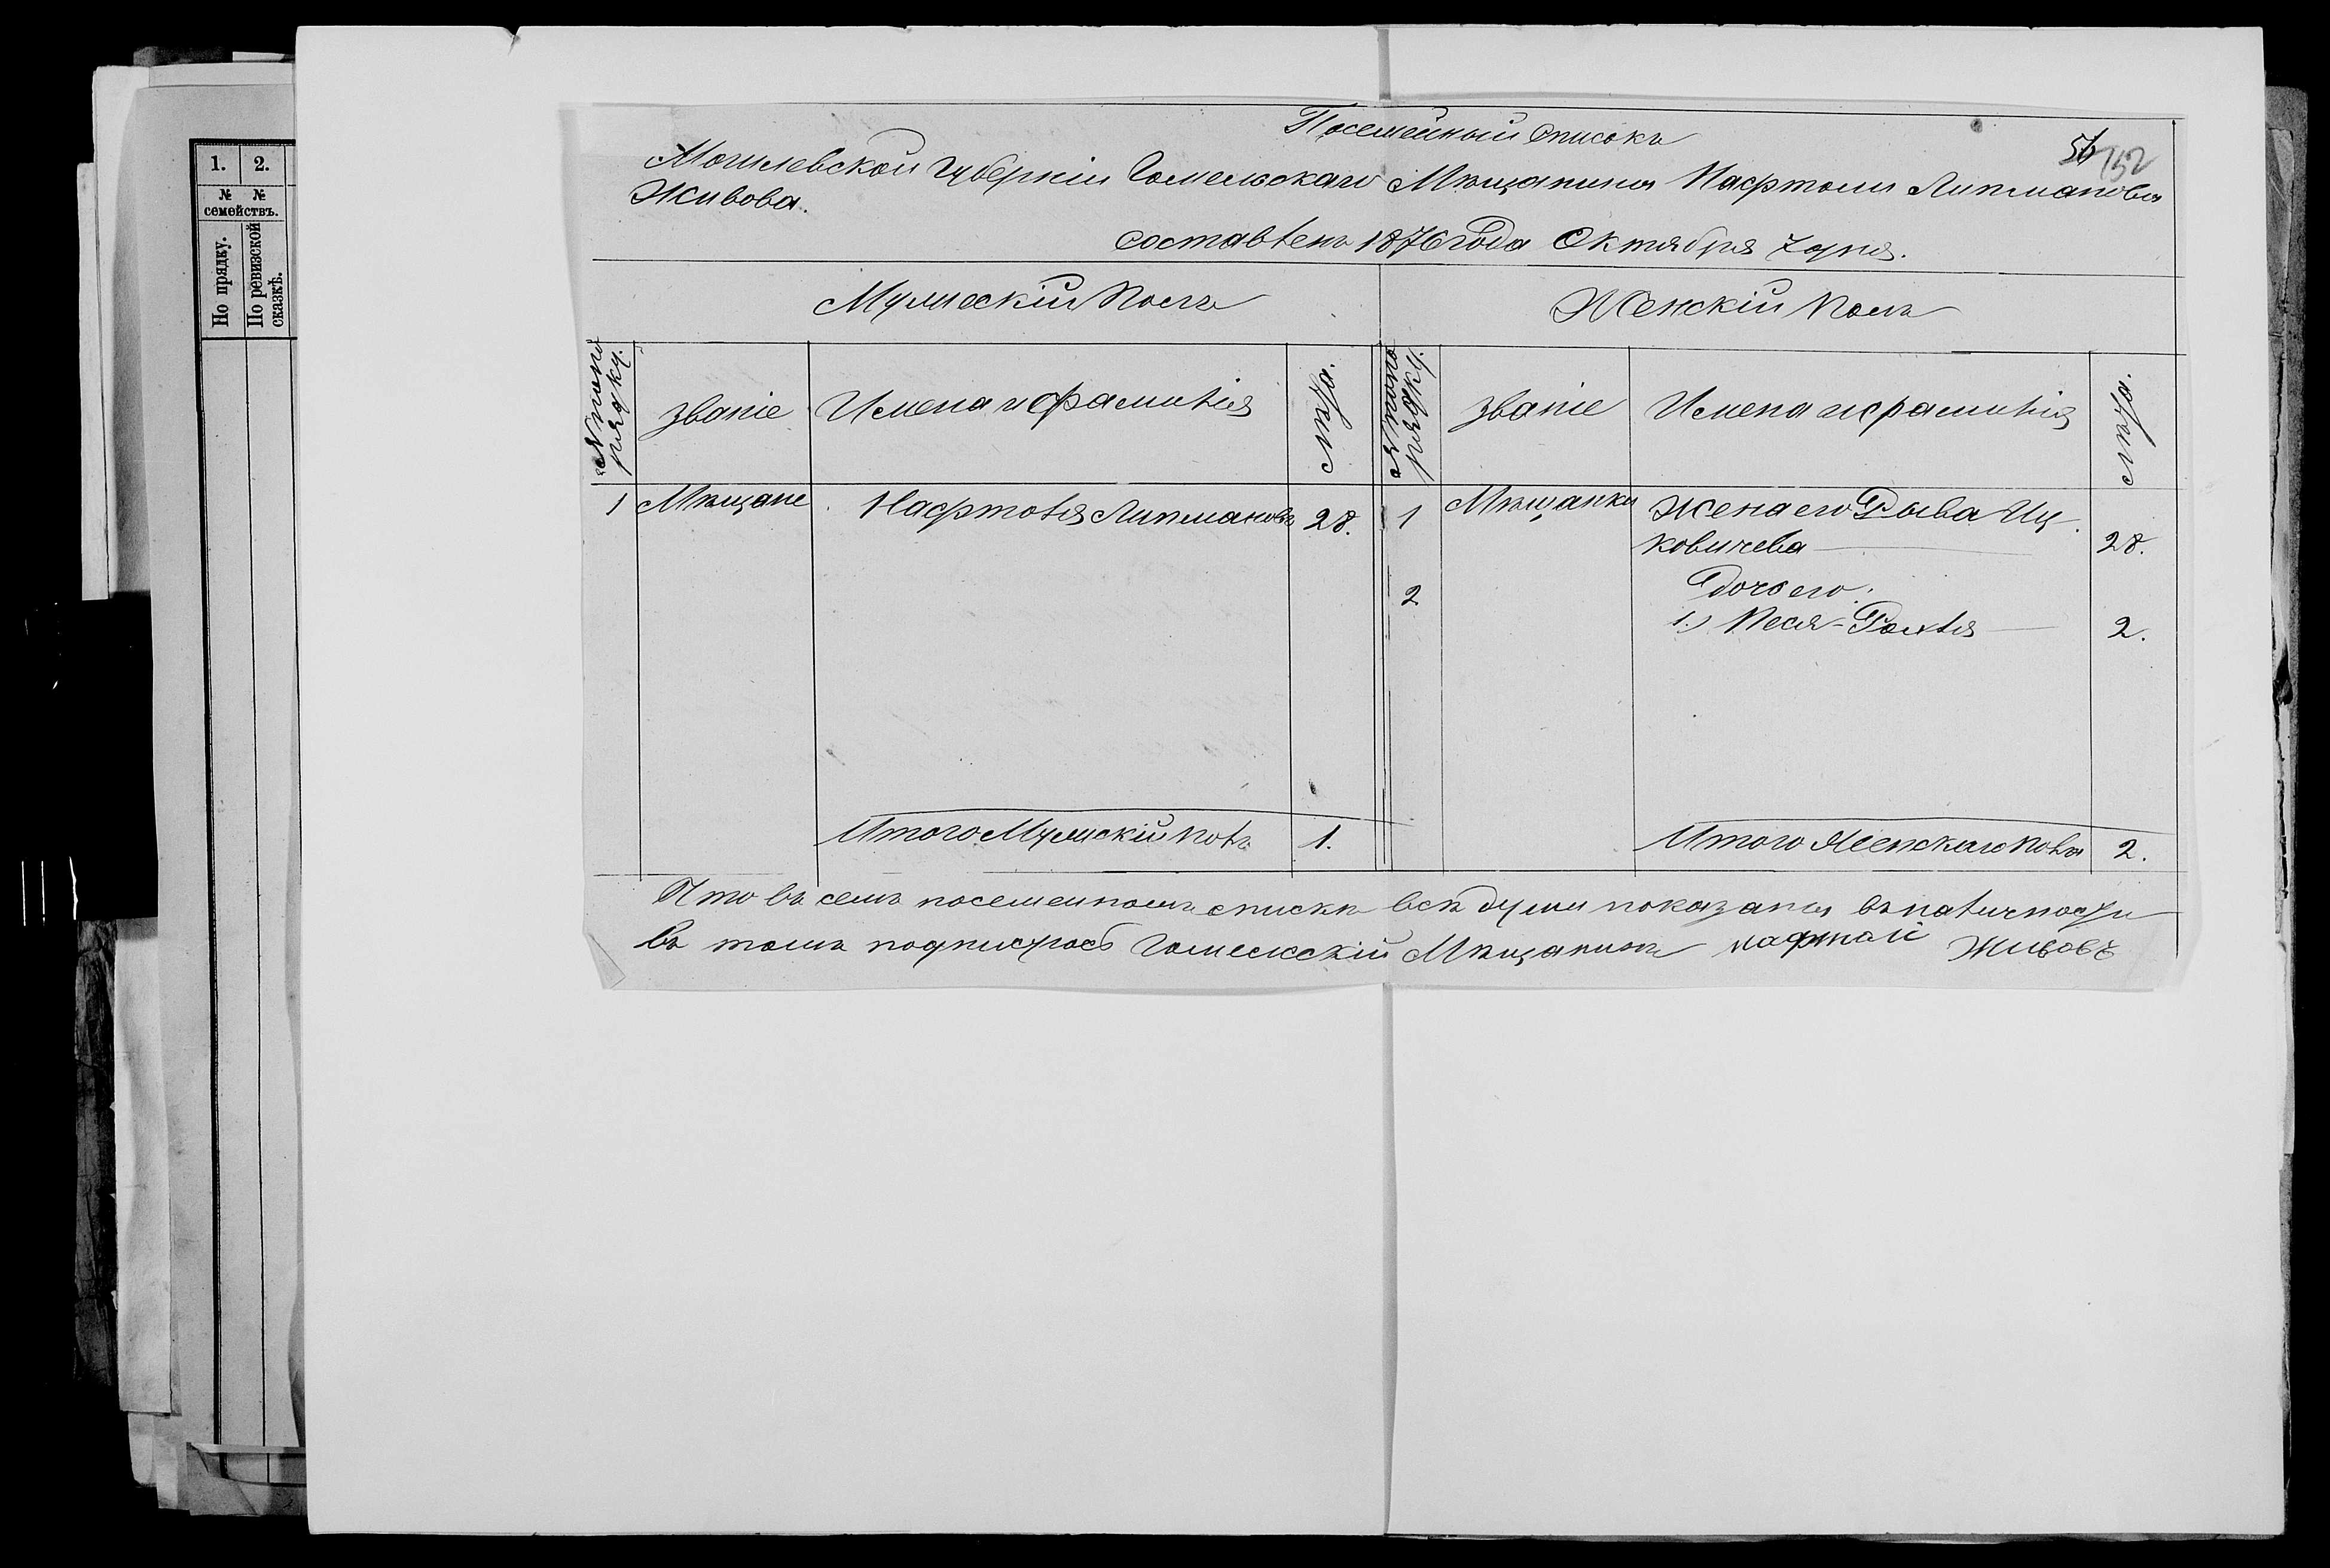 1. 2.
№ №
семействъ.
По прядку.
По ревизской
сказкѣ.
Посемейный списокъ
Могилевской Губерніи Гомельскаго Мѣщанина Нафтоли Липманова
Живова.
составленъ 1876 года Октября 7 дня.
152
Мужескій Полъ
Женскій Полъ
№ по по
рядку.
званіе
Имена и фамилія
Лѣта.
№ по по
рядку.
званіе
Имена и фамилія
Лѣта.
1 Мѣщане Нафтоля Липмановъ 28.
1 Мѣщанки Жена его Рыва Иц
ковичева 28.
2 Дочь его:
1.) Песя - 2.
Итого Мужскій полъ 1.
Итого Женскаго пола 2.
Что въ семъ посемейномъ спискѣ всѣ души показаны въ наличности
въ томъ подписуюсь Гомельскій Мѣщанинъ нафтали Живовъ